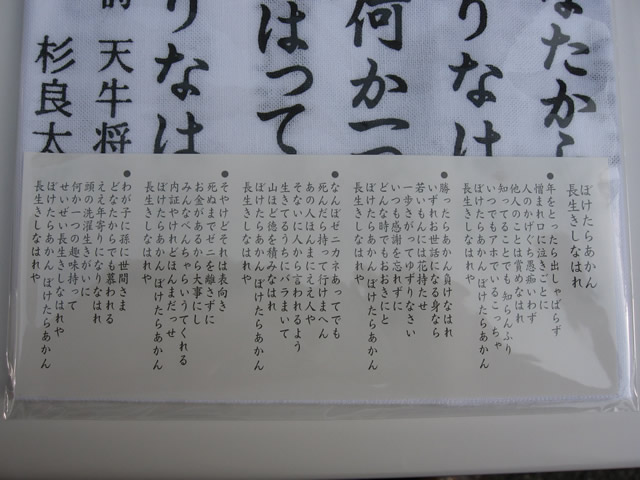 なたから
りなは
何か一つ
はって
りなは
天牛将
杉良太
ぼけたらあかん
長生きしなはれ
●年をとったら出しゃばらず
憎まれ口に泣きごとに
人のかげぐち愚痴いわず
他人のことは賞めなはれ
知ってることでも知らんふり
いつでもアホでいるこっちゃ
ぼけたらあかん ぼけたらあかん
長生きしなはれや
●勝ったらあかん負けなはれ
いずれお世話になる身なら
若いもんには花持たせ
一歩さがってゆずりなさい
いつも感謝を忘れずに
どんな時でもおおきにと
ぼけたらあかん ぼけたらあかん
長生きしなはれや
●なんぼゼニカネあってでも
死んだら持って行けまへん
あの人はほんまにええ人や
そないに人から言われるよう
生きてるうちにバラまいて
山ほど徳を積みなはれ
ぼけたらあかん ぼけたらあかん
長生きしなはれや
●そやけどそれは表向き
死ぬまでゼニを離さずに
お金があるから大事にし
みんなべんちゃらいうてくれる
内証やけれどほんまだっせ
ぼけたらあかん ぼけたらあかん
長生きしなはれや
●わが子に孫に世間さま
どなたからでも慕われる
ええ年寄りになりなはれ
頭の洗濯生きがいに
何か一つの趣味持って
せいぜい長生きしなはれや
ぼけたらあかん ぼけたらあかん
長生きしなはれや